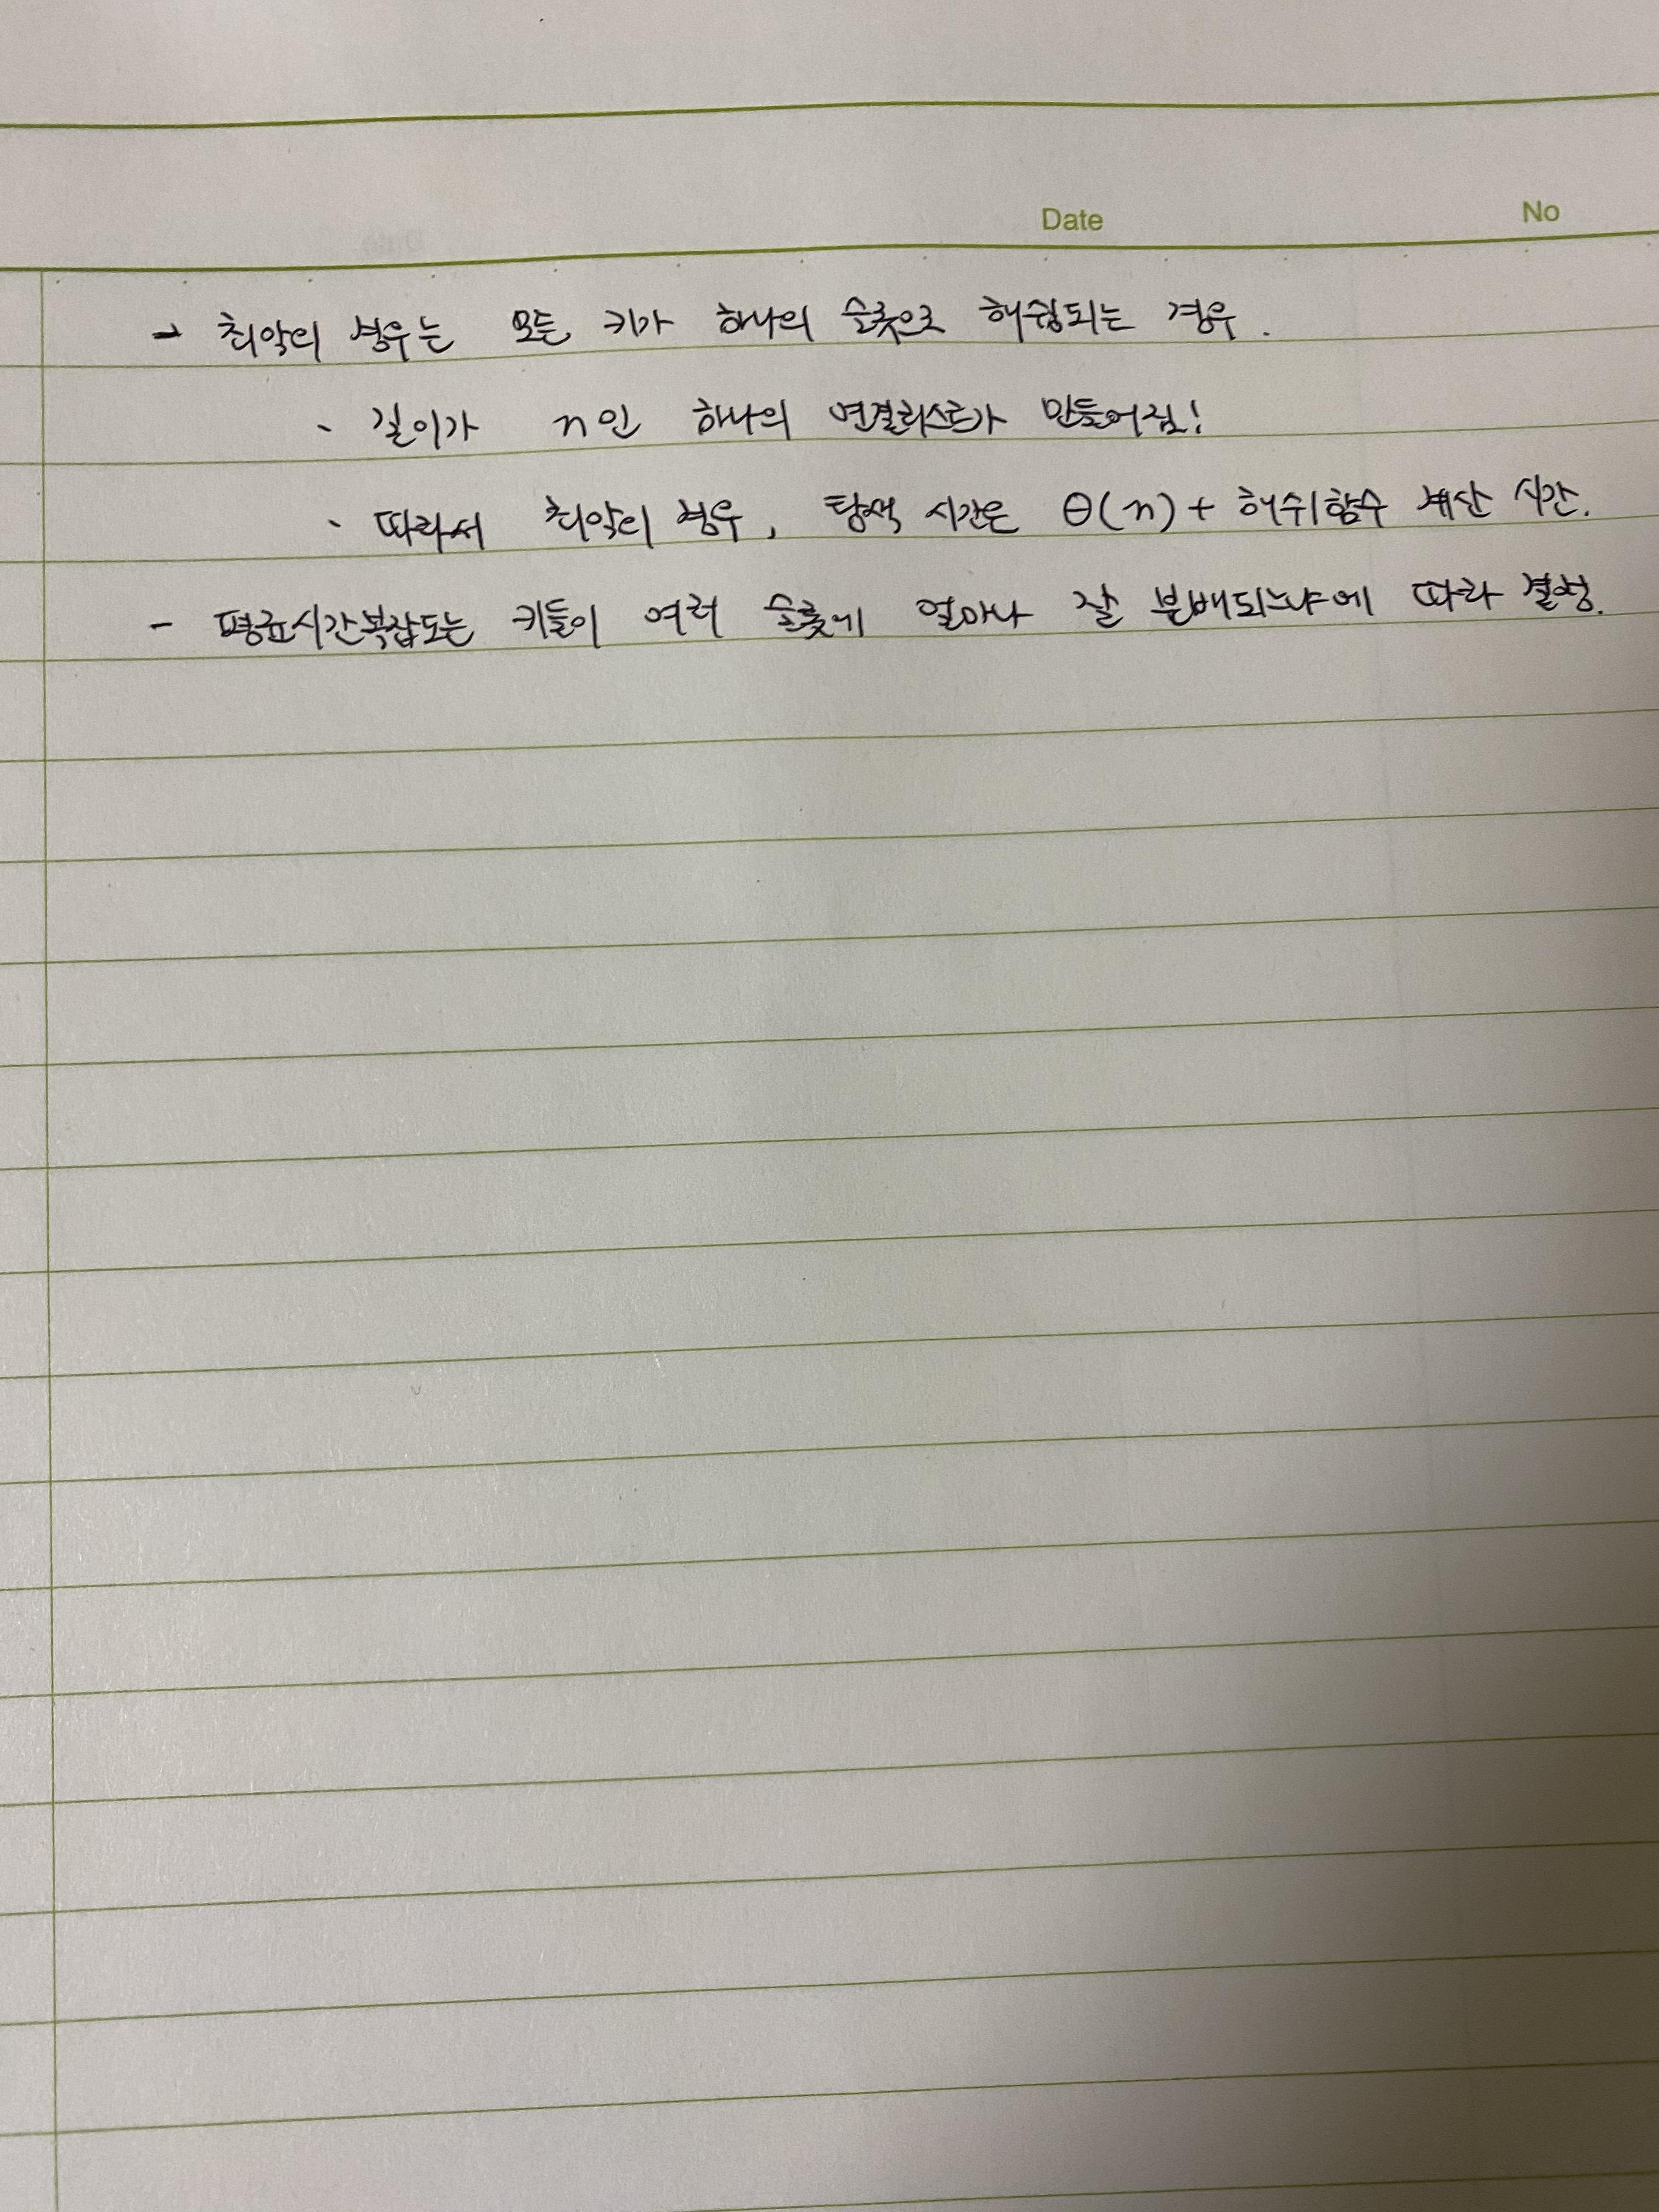 Date No
- 최악의 경우는 모든 키가 하나의 슬롯으로 해슁되는 경우.
· 길이가 n인 하나의 연결리스트가 만들어짐!
· 따라서 최악의 경우, 탐색 시간은 Θ(n) + 해쉬함수 계산 시간.
- 평균시간복잡도는 키들이 여러 슬롯에 얼마나 잘 분배되느냐에 따라 결정.